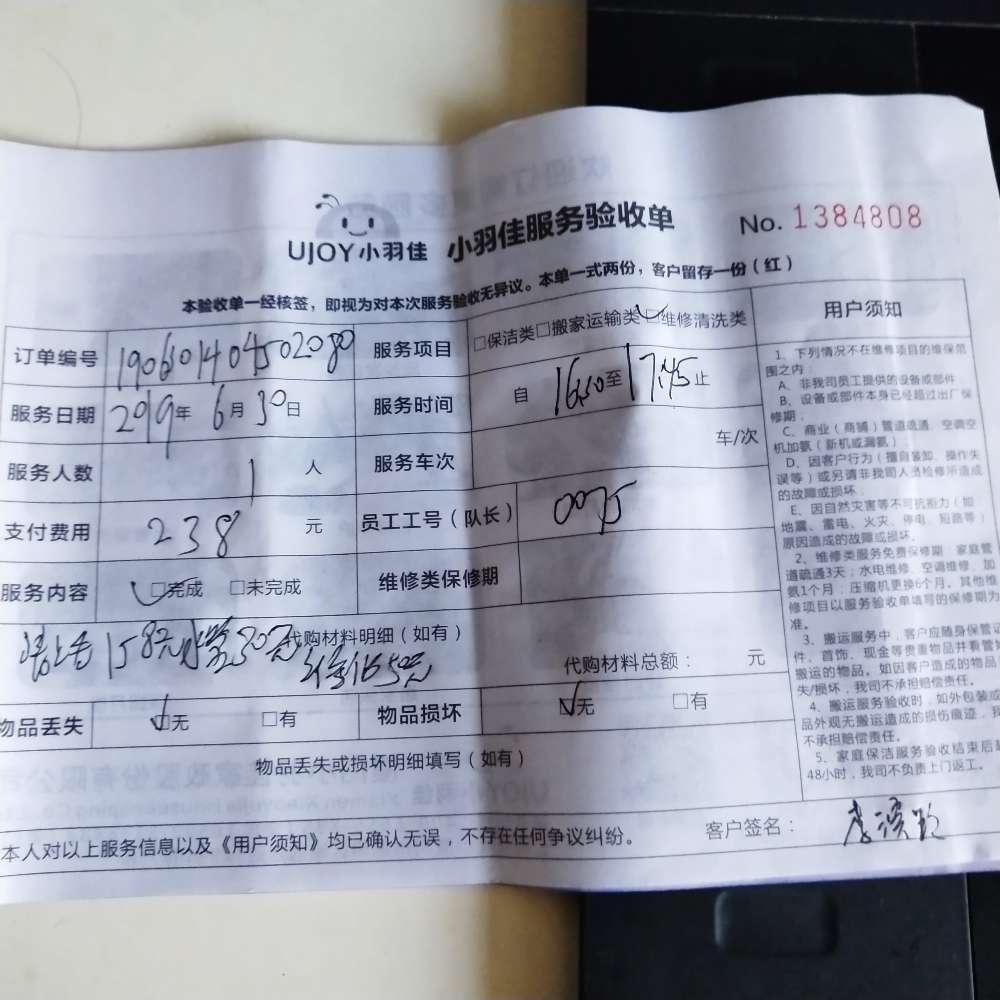 UJOY小羽佳 小羽佳服务验收单 No. 1384808
本验收单一经核签，即视为对本次服务验收无异议。本单一式两份，客户留存一份（红）
订单编号 1906301404502080 服务项目 □保洁类□搬家运输类□维修清洗类
服务日期 2019年 6月 30日 服务时间 自 16:10至 17:45止
服务人数 1 人 服务车次 车/次
支付费用 238 元 员工工号（队长） 0075
服务内容 □完成 □未完成 维修类保修期
代购材料明细（如有）
158元 50元
代购材料总额： 元
物品丢失 □无 □有 物品损坏 □无 □有
物品丢失或损坏明细填写（如有）
本人对以上服务信息以及《用户须知》均已确认无误，不存在任何争议纠纷。 客户签名：
用户须知
1、下列情况不在维修项目的维保范
围之内：
A、非我司员工提供的设备或部件
B、设备或部件本身已经超过出厂保
修期；
C、商业（商铺）管道疏通、空调空
机加氨（新机或漏氨）；
D、因客户行为（擅自装卸、操作失
误等）或另请非我司人员检修所造成
的故障或损坏；
E、因自然灾害等不可抗拒力（如
地震、雷电、火灾、停电、短路等）
原因造成的故障或损坏.
2、维修类服务免费保修期：家庭管
道疏通3天；水电维修、空调维修、加
氨1个月；压缩机更换6个月。其他维
修项目以服务验收单填写的保修期为
准。
3、搬运服务中，客户应随身保管证
件、首饰、现金等贵重物品并看管
搬运的物品。如因客户造成的物品
失/损坏，我司不承担赔偿责任。
4、搬运服务验收时，如外包装或
品外观无搬运造成的损伤痕迹，我
不承担赔偿责任。
5、家庭保洁服务验收结束后
48小时，我司不负责上门返工。